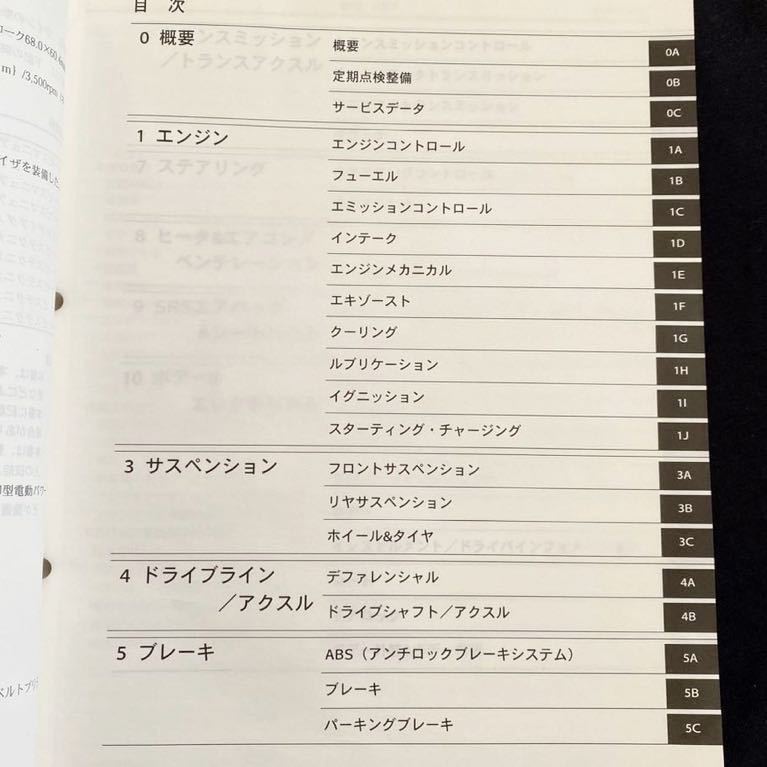 目 次
0 概要
概要 0A
定期点検整備 0B
サービスデータ 0C
1 エンジン
エンジンコントロール 1A
フューエル 1B
エミッションコントロール 1C
インテーク 1D
エンジンメカニカル 1E
エキゾースト 1F
クーリング 1G
ルブリケーション 1H
イグニッション 1I
スターティング・チャージング 1J
3 サスペンション
フロントサスペンション 3A
リヤサスペンション 3B
ホイール&タイヤ 3C
4 ドライブライン
／アクスル
デファレンシャル 4A
ドライブシャフト／アクスル 4B
5 ブレーキ
ABS（アンチロックブレーキシステム） 5A
ブレーキ 5B
パーキングブレーキ 5C
ーク68.0×60.4
m} /3,500rpm
イザを装備した
型電動パワー